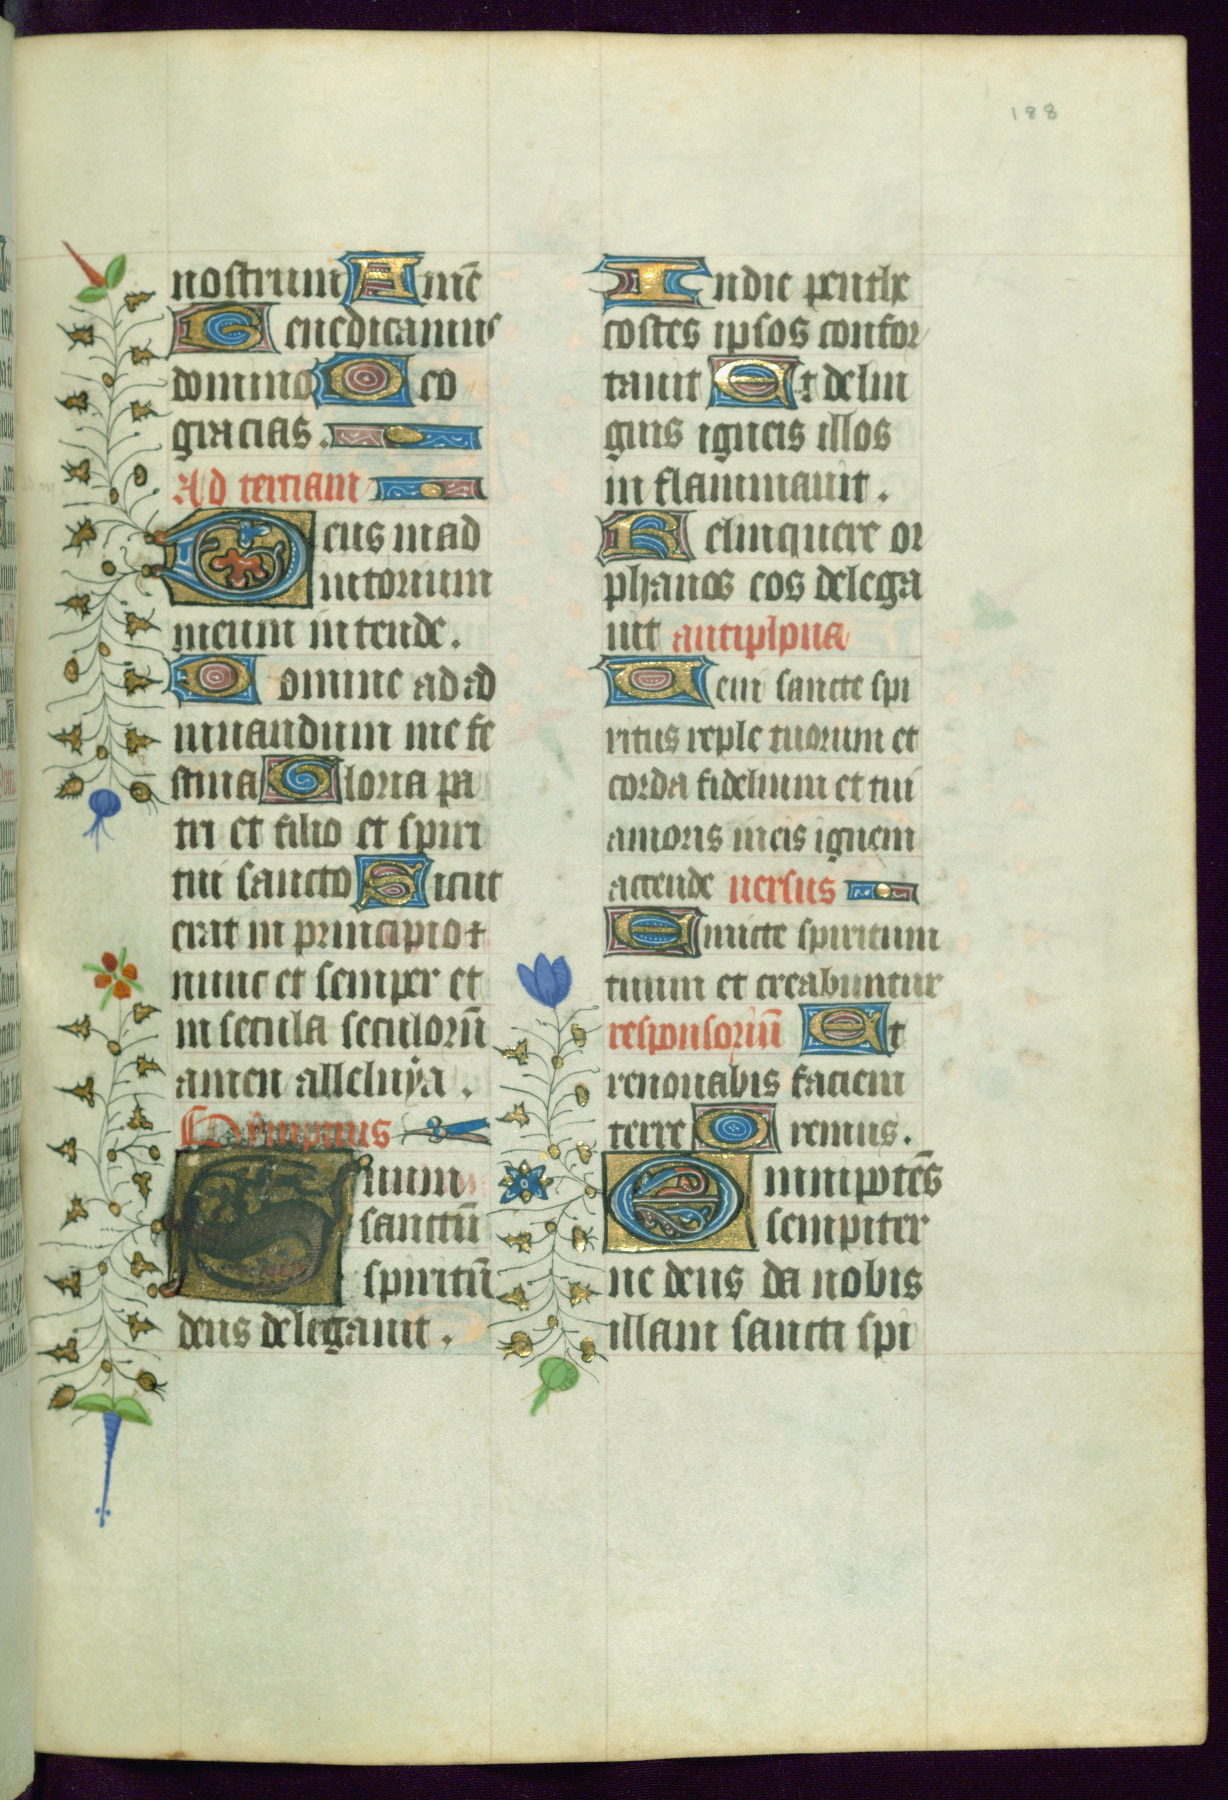 188
nostrum Amē
Benedicamus
domino Deo
gracias.
Ad terciam
Deus in ad
iutorium
meum intende.
Domine ad ad
iuuandum me fe
stina Gloria pa
tri et filio et spiri
tui sancto Sicut
erat in principio et
nunc et semper et
in secula seculorū
amen alleluya.
Ympnus
Suum
sanctū
spiritū
deus delegauit.
In die penthe
costes ipsos confor
tauit Et de lin
guis igneis illos
in flammauit.
Relinquere or
phanos eos delega
uit antiphona
Veni sancte spi
ritus reple tuorum et
corda fidelium et tui
amoris in eis ignem
accende uersus
Emitte spiritum
tuum et creabuntur
responsoriū Et
renouabis faciem
terre Oremus.
Omnipotēs
sempiter
ne deus da nobis
illam sancti spi